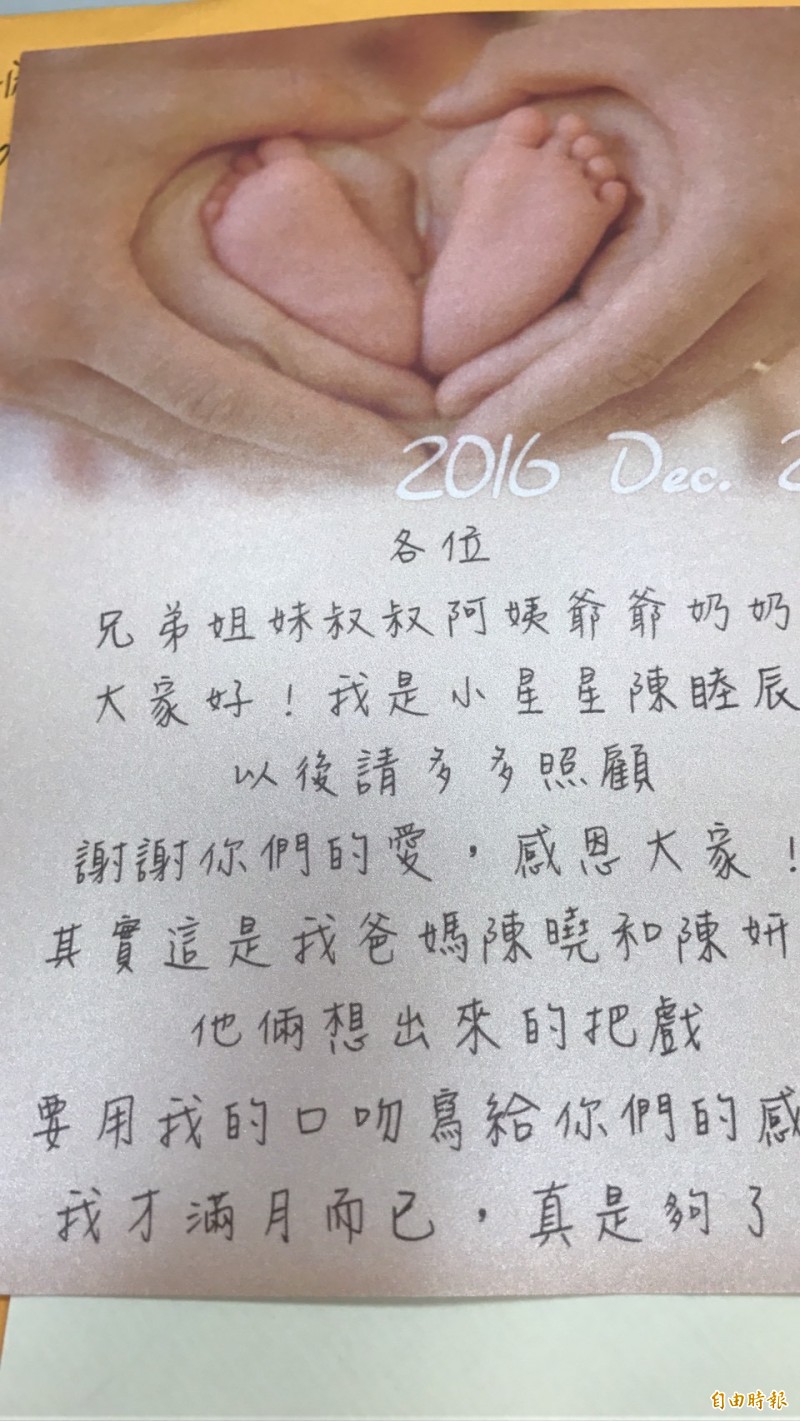 2016 Dec. 2
各位
兄弟姐妹叔叔阿姨爺爺奶奶
大家好！我是小星星陳睦辰
以後請多多照顧
謝謝你們的愛，感恩大家！
其實這是我爸媽陳曉和陳妍
他倆想出來的把戲
要用我的口吻寫給你們的感
我才滿月而已，真是夠了
自由時報